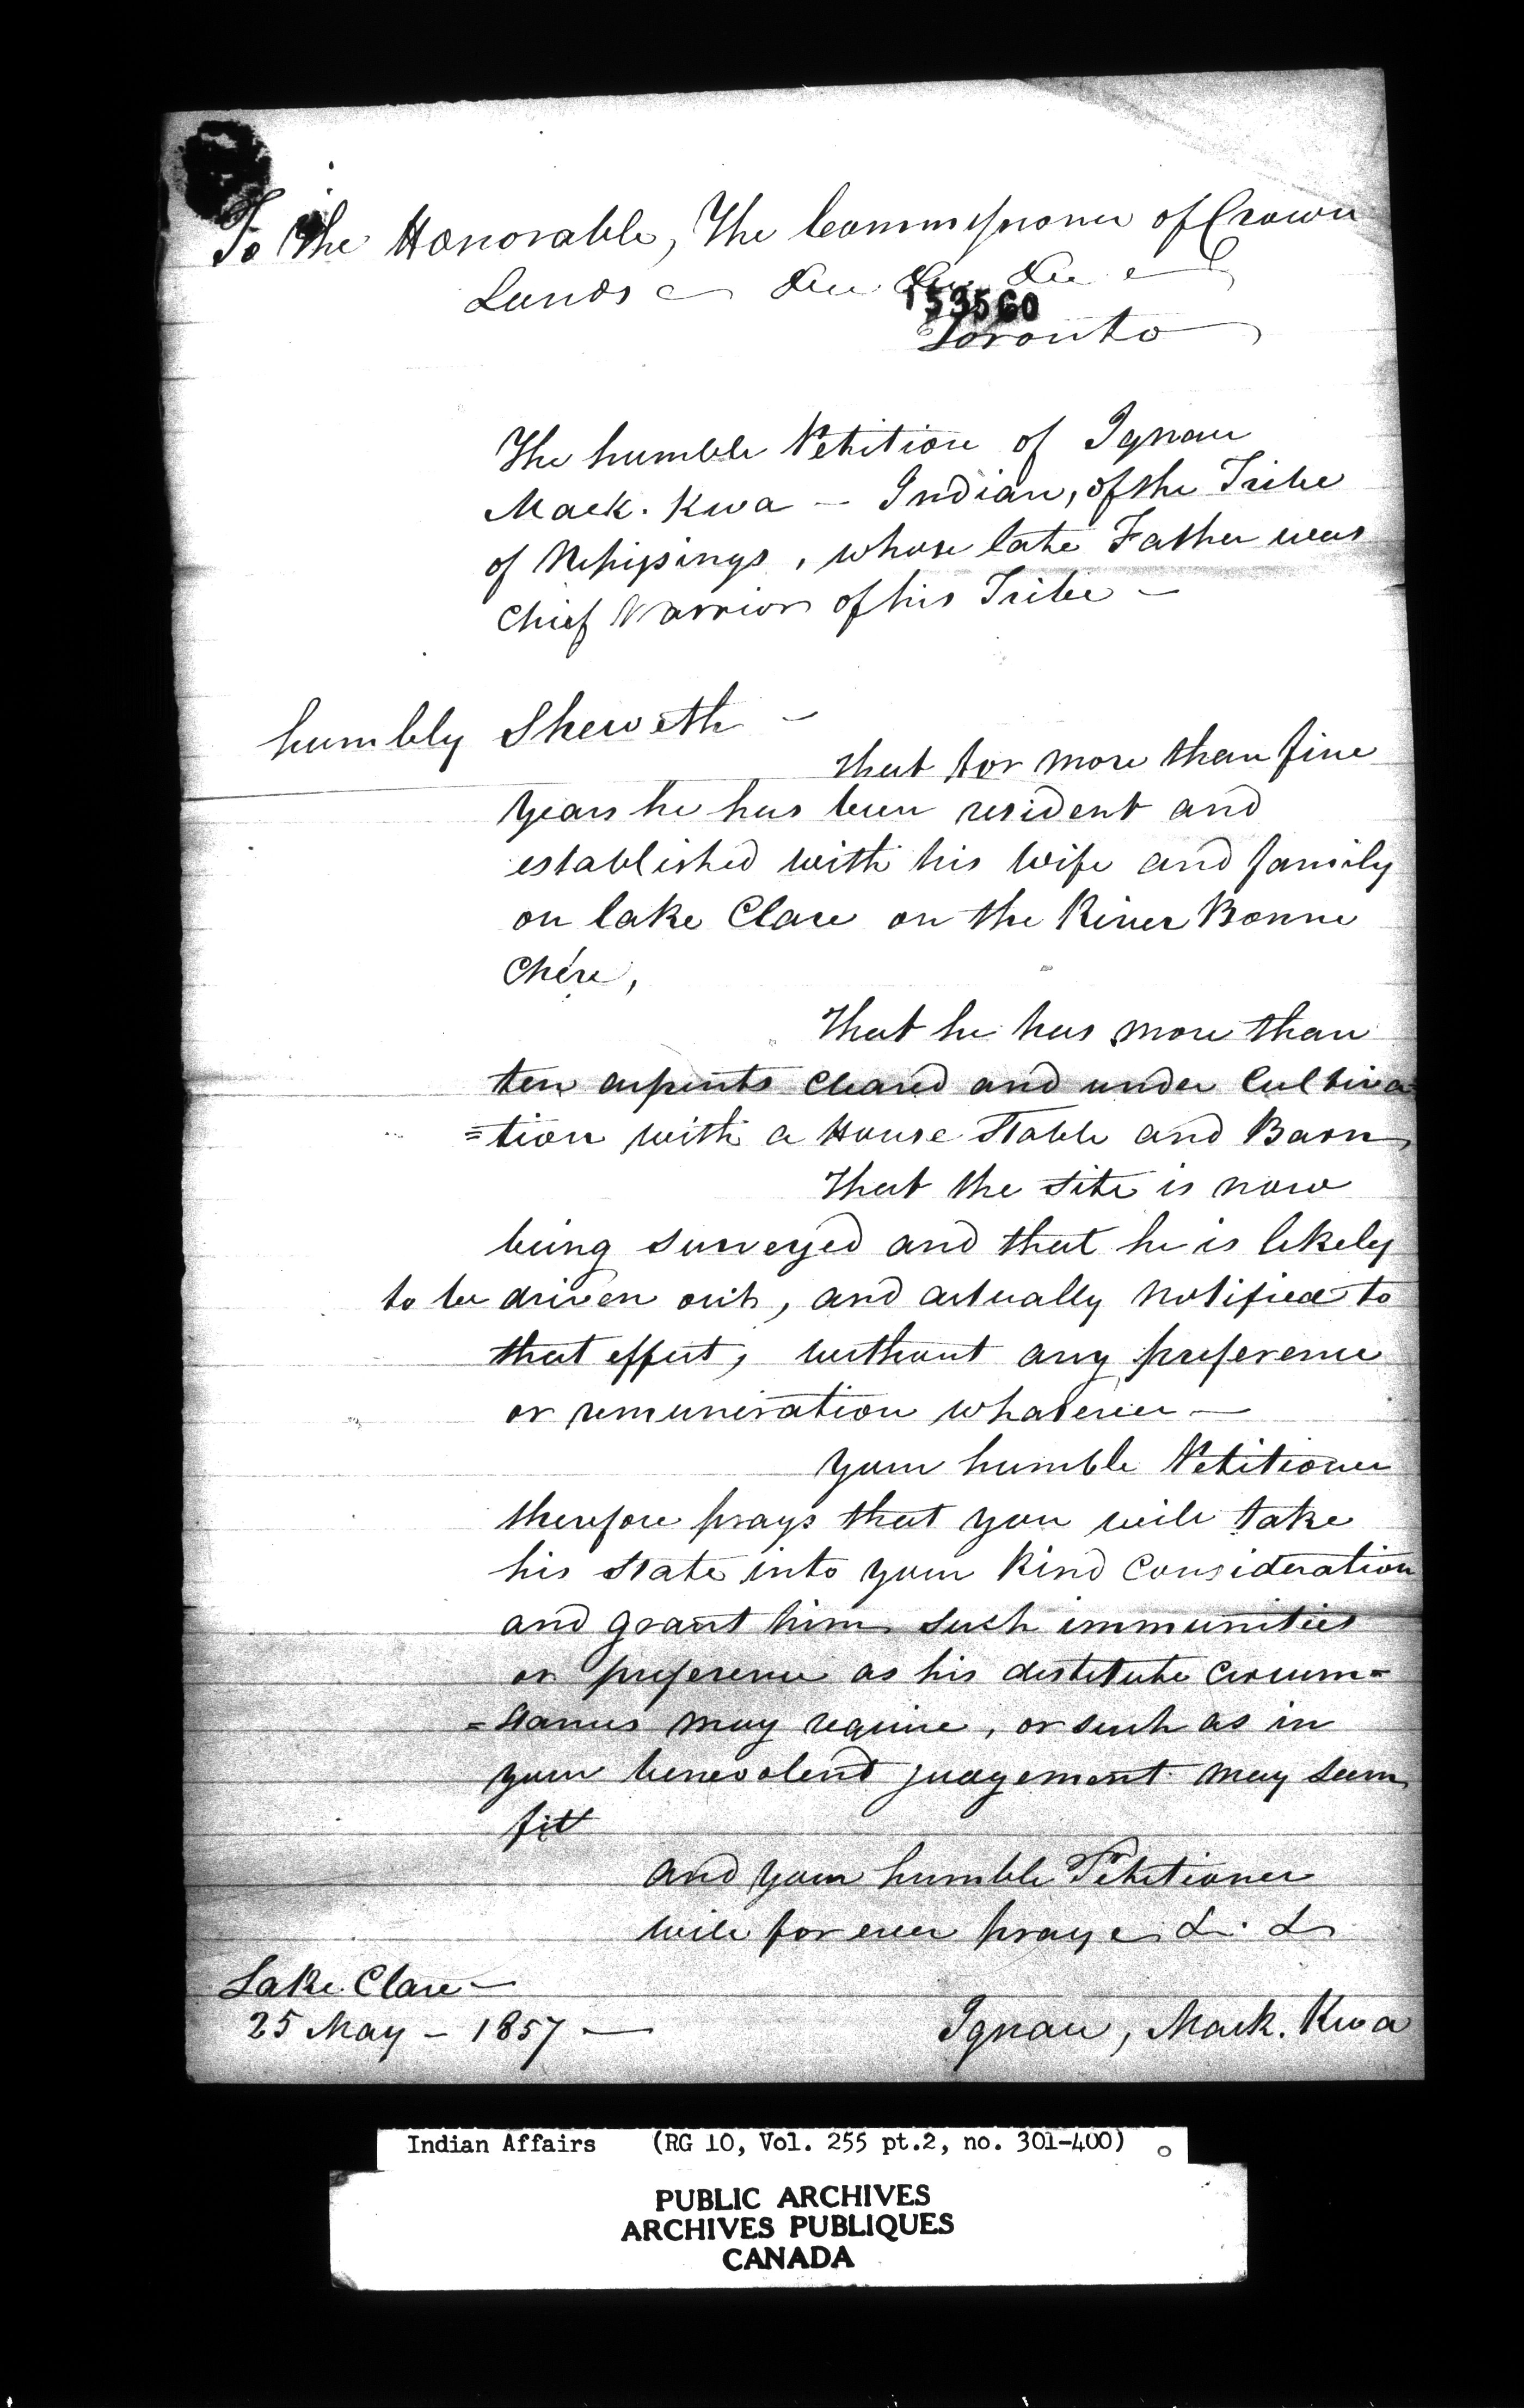 To The Honorable, The Commissioner of Crown
Lands &c &c &c
153560
Toronto
The humble Petition of Ignace
Mack. Kwa – Indian, of the Tribe
of Nipissings, whose late Father was
Chief Warrior of his Tribe –
humbly Sheweth –
that for more than five
years he has been resident and
established with his wife and family
on lake Clare on the River Bonne
Chére,
That he has more than
ten arpents cleared and under Cultiva
=tion with a House Stable and Barn
That the site is now
being surveyed and that he is likely
to be driven out, and actually notified to
that effect, without any preference
or remuneration whatever –
Your humble Petitioner
therefore prays that you will take
his state into your Kind Consideration
and grant him such immunities
or preference as his destitute circum=
=stances may require, or such as in
your benevolent judgement may seem
fit
and your humble Petitioner
will for ever pray &c &c
Lake Clare –
25 May – 1857 —
Ignace, Mack. Kwa
Indian Affairs (RG 10, Vol. 255 pt.2, no. 301-400)
PUBLIC ARCHIVES
ARCHIVES PUBLIQUES
CANADA